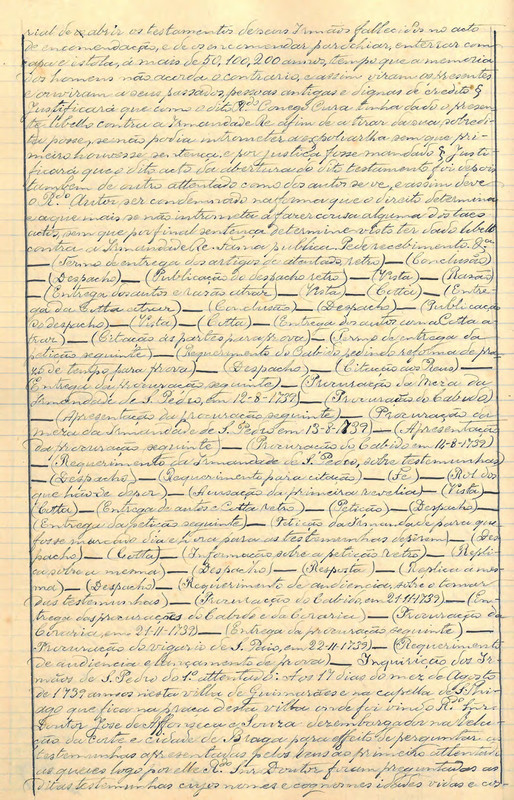 rial de abrir os testamentos de seus Irmãos fallecidos no acto
de encomendação, e de os encomendar parochiar, enterrar com
capa e estola, á mais de 50, 100, 200 annos, tempo que a memoria
dos homens não acorda o contrario, e assim viram os presentes
e ouviram a seus passados, pessoas antigas e dignas de credito §
Justificará que como o dito Rdo Conego Cura tinha dado o presen-
te libello contra a Irmandade Re afim de a tirar da sua sobredi-
ta posse, se não podia intrometer a espolial-a sem que pri-
meiro houvesse sentença e por justiça fosse mandado § Justi-
ficará que o dito acto da abertura do dito testamento foi depois
tambem de outro attentado como dos autos se ve, e assim deve
o Rdo Autor, ser condemnado na forma que o direito determina
e a que mais se não intrometa á fazer cousa alguma dos taes
actos, sem que por final sentença determine visto ter dado libello
contra a Irmandade Re fama publica Pede recebimento &a
— (Termo de entrega dos artigos de atentado, retro) — (Conclusão)
— (Despacho) — (Publicação do despacho retro) — (Vista) — (Razão)
— (Entrega dos autos e razão atraz) — (Vista) — (Cotta) — (Entre-
ga da Cotta atraz) — (Conclusão) — (Despacho) — (Publicação
do despacho) — (Vista) — (Cotta) — (Entrega dos autos com a Cotta a-
traz) — (Citação ás partes para prova) — (Termo de entrega da
petição seguinte) — (Requerimento do Cabido pedindo reforma de pra-
zo de tempo para prova) — (Despacho) — (Citação aos Reus) —
(Entrega da procuração seguinte) — (Procuração da Meza da
Irmandade de S. Pedro, em 12-8-1739) — (Procuração do Cabido)
— (Apresentação da procuração seguinte) — (Procuração da
meza da Irmandade de S. Pedro em 13-8-1739) — (Apresentação
da procuração seguinte) — (Procuração do Cabido em 14-8-1739)
— (Requerimento da Irmandade de S. Pedro, sobre testemunhas)
— (Despacho) — (Requerimento para citação) — (Fé) — (Rol dos
que hão de depor) — (Acusação da primeira revelia) — (Vista) —
(Cotta) — (Entrega de autos e Cotta retro) — (Petição) — (Despacho)
— (Entrega da petição seguinte) — (Petição da Irmandade para que
fosse marcado dia e hora para as testemunhas deporem) — (Des-
pacho) — (Cotta) — (Informação sobre a petição retro) — (Repli-
ca, sobre a mesma) — (Despacho) — (Resposta) — (Replica á mes-
ma) — (Despacho) — (Requerimento de audiencia, sobre o tomar
das testemunhas) — (Procuração do Cabido, em 21-11-1739) — (En-
trega das procurações do Cabido e da Coraria) — (Procuração da
Coraria, em 21-11-1739) — (Entrega da procuração seguinte) —
Procuração do vigario de S. Paio, em 22-11-1739) — (Requerimento
de audiencia e lançamento de prova) — Inquirição dos Ir-
mãos de S. Pedro do 1º attentado: Aos 17 dias do mez de Agosto
de 1739 annos nesta villa de Guimarães e na capella de S. Thi-
ago que fica na praça desta villa onde foi vindo o Rdo Snr.
Doutor José da Affonseca e Souza dezembargador na Rela-
ção da Corte e cidade de Braga para effeito de perguntar as
testemunhas apresentadas pelos Reus ao primeiro attentado
as quaes logo por elle Rdo Snr Doutor foram perguntadas as
ditas testemunhas cujos nomes e cognomes idades vidas e cos-